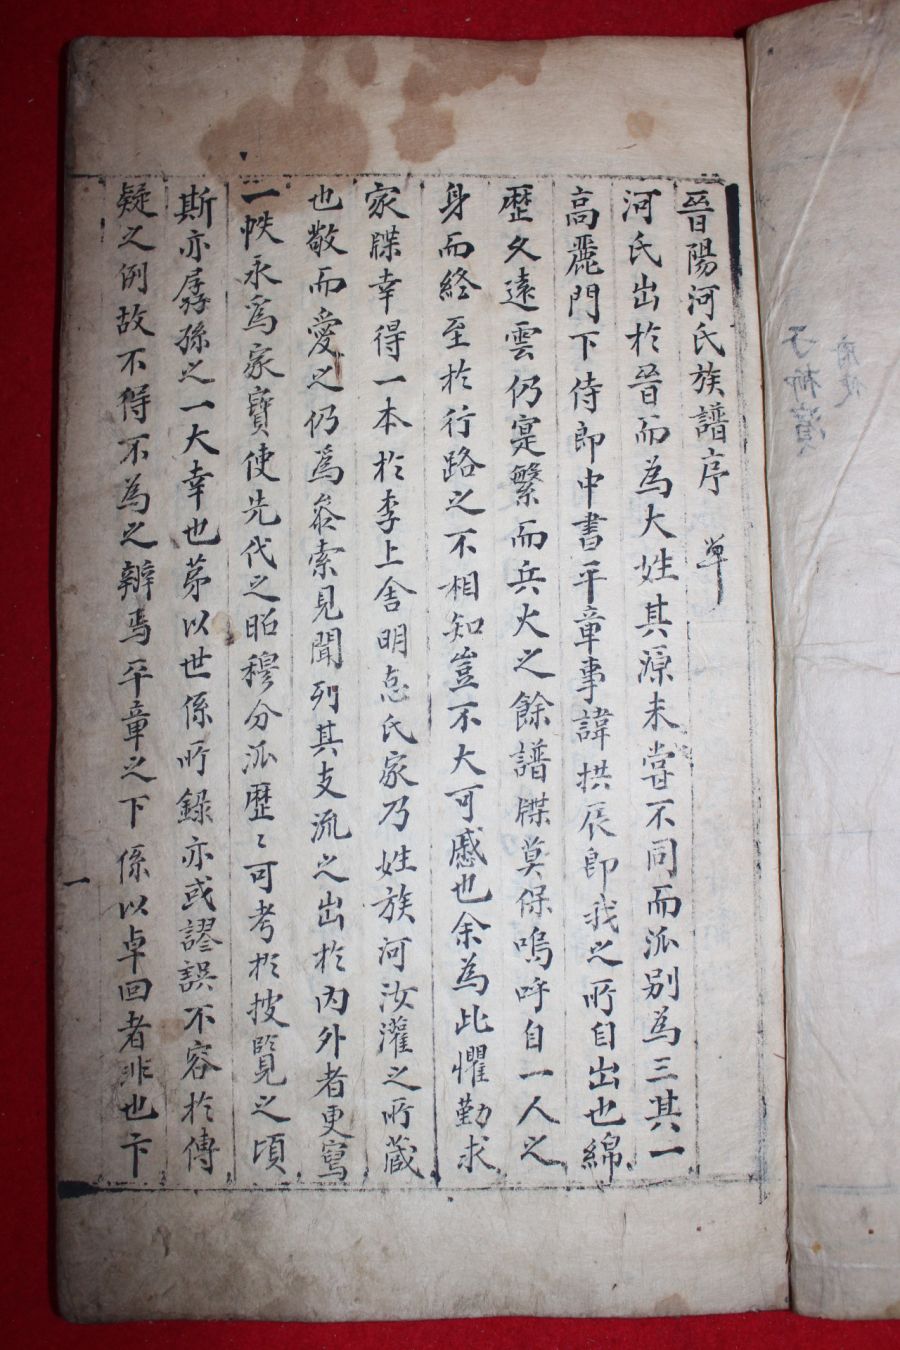 晉陽河氏族譜序 單
河氏出於晉而為大姓其源未甞不同而派别為三其一
高麗門下侍郎中書平章事諱拱辰即我之所自出也綿
歷久遠雲仍寔繁而兵火之餘譜牒莫保嗚呼自一人之
身而終至於行路之不相知豈不大可慼也余為此懼勤求
家牒幸得一本於李上舍明怘氏家乃姓族河汝灌之所蔵
也敬而愛之仍為叅索見聞列其支流之出於内外者更寫
一帙永為家寶使先代之昭穆分派歷〻可考於披覽之頃
斯亦孱孫之一大幸也苐以世係所錄亦或謬誤不容於傳
疑之例故不得不為之辨焉平章之下係以卓回者非也卞
一